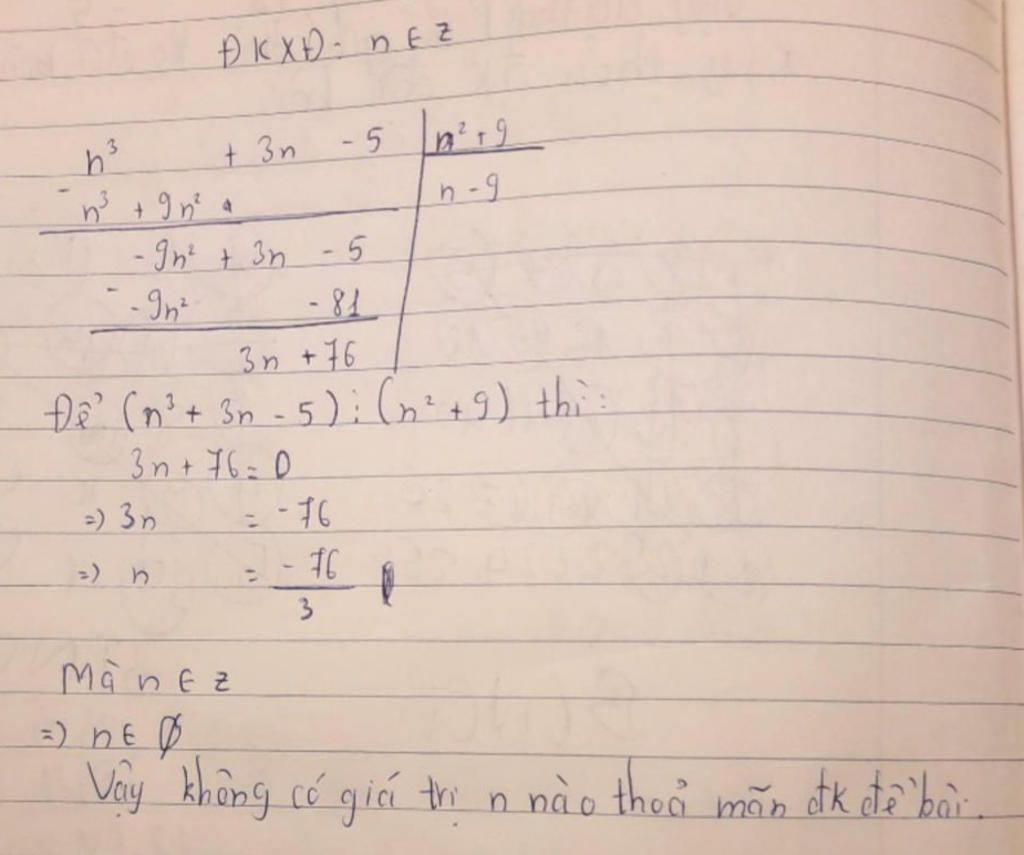 ĐKXĐ: n ∈ Z
n³ + 3n - 5 | n² + 9
- n³ + 9n² | n - 9
- 9n² + 3n - 5
- - 9n² - 81
3n + 76
Để (n³ + 3n - 5) ⋮ (n² + 9) thì:
3n + 76 = 0
=) 3n = - 76
=) n = - 76 / 3
Mà n ∈ Z
=) n ∈ ∅
Vậy không có giá trị n nào thoả mãn đk đề bài.